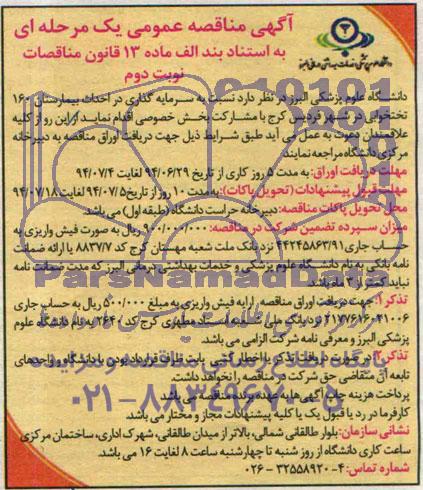 آگهی مناقصه عمومی یک مرحله ای
به استناد بند الف ماده ۱۳ قانون مناقصات
نوبت دوم
دانشگاه علوم پزشکی البرز در نظر دارد نسبت به سرمایه گذاری در احداث بیمارستان ۱۶۰
تختخوابی در شهر فردیس کرج با مشارکت بخش خصوصی اقدام نماید. از این رو از کلیه
علاقمندان دعوت به عمل می آید طبق شرایط ذیل جهت دریافت اوراق مناقصه به دبیرخانه
مرکزی دانشگاه مراجعه نمایند.
مهلت دریافت اوراق: به مدت ۵ روز کاری از تاریخ ۹۴/۰۶/۲۹ لغایت ۹۴/۰۷/۴
مهلت قبول پیشنهادات (تحویل پاکات): به مدت ۱۰ روز از تاریخ ۹۴/۰۷/۵ لغایت ۹۴/۰۷/۱۸
محل تحویل پاکات مناقصه: دبیرخانه حراست دانشگاه (طبقه اول) می باشد.
میزان سپرده تضمین شرکت در مناقصه: ۹۰۰/۰۰۰/۰۰۰ ریال به صورت فیش واریزی به
حساب جاری ۴۴۲۴۵۸۶۳/۹۱ نزد بانک ملت شعبه مهستان کرج کد ۸۸۳۷/۷ یا ارائه ضمانت
نامه بانکی به نام دانشگاه علوم پزشکی و خدمات بهداشتی درمانی البرز که مدت ضمانت نامه
نباید کمتر از ۳ ماه باشد.
تذکر ۱: جهت دریافت اوراق مناقصه ارایه فیش واریزی به مبلغ ۵۰۰/۰۰۰ ریال به حساب جاری
۲۱۷۷۶۱۶۰۴۱۰۰۶ نزد بانک ملی شعبه استاد مطهری کرج کد ۲۶۴۰ به نام دانشگاه علوم
پزشکی البرز و معرفی نامه شرکت الزامی می باشد.
تذکر ۲: در صورت دریافت تذکر یا اخطار کتبی بابت طرف قرارداد بودن با دانشگاه و واحدهای
تابعه آن متقاضی حق شرکت در مناقصه را نخواهد داشت.
پرداخت هزینه چاپ آگهی ها به عهده برنده مناقصه می باشد
کارفرما در رد یا قبول یک یا کلیه پیشنهادات مجاز و مختار می باشد.
نشانی سازمان: بلوار طالقانی شمالی، بالاتر از میدان طالقانی، شهرک اداری، ساختمان مرکزی
ساعت کاری دانشگاه از روز شنبه تا چهارشنبه ساعت ۸ لغایت ۱۶ می باشد.
شماره تماس: ۴-۳۲۵۵۸۹۲۰-۰۲۶
ParsNamadData